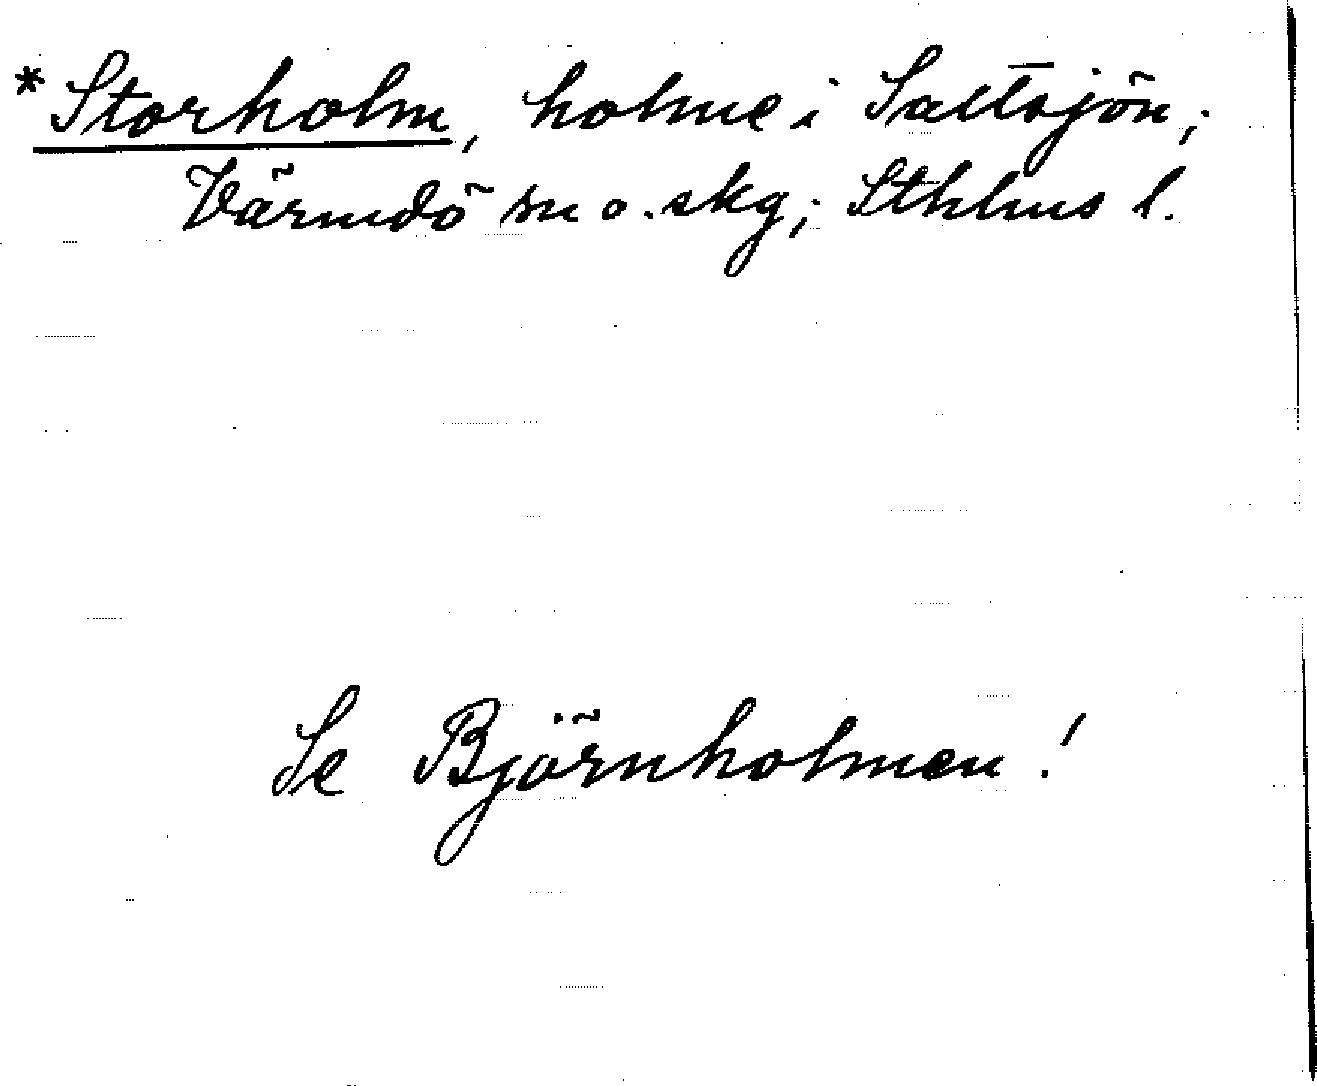 *Storholm, holme i Saltsjön;
Värmdö sn o. skg; Sthlms l.
Se Björnholmen!